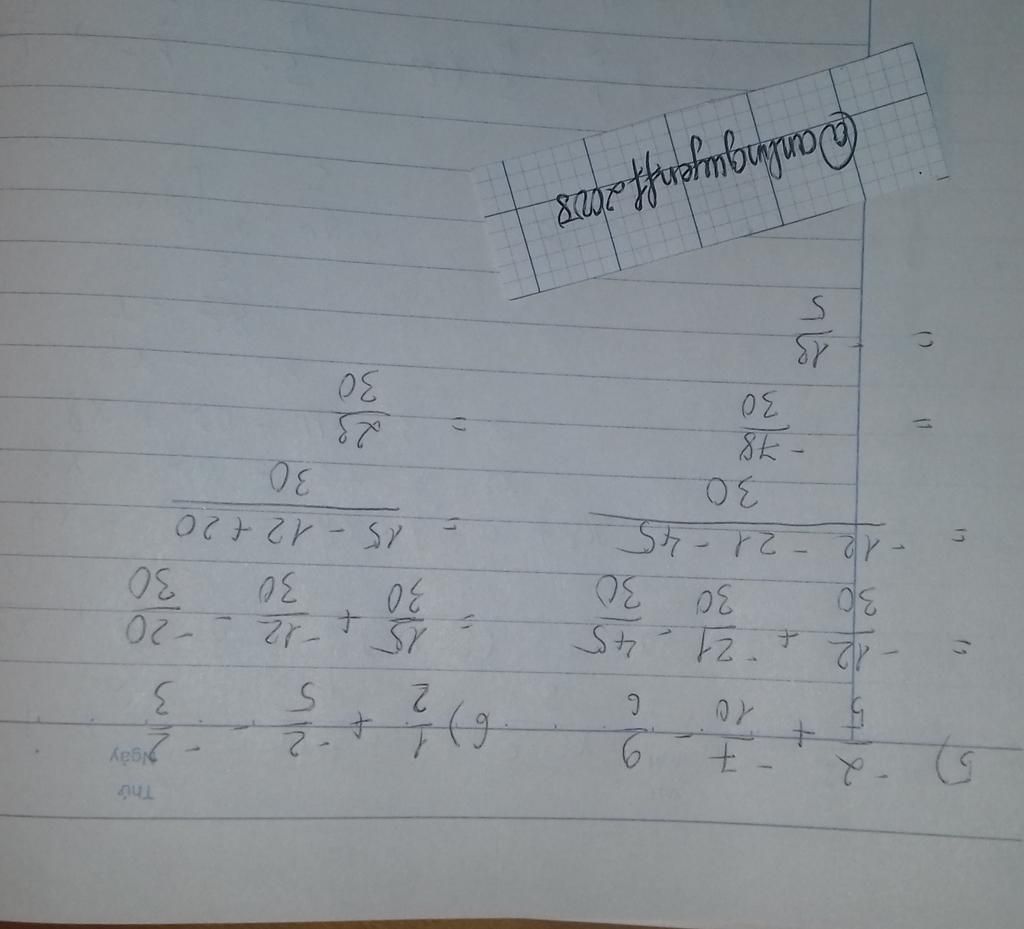 Thứ
Ngày
5) -2/5 + -7/10 - 9/6
= -12/30 + -21/30 - 45/30
= -12 - 21 - 45/30
= -78/30
= -13/5
6) 1/2 + -2/5 - -2/3
= 15/30 + -12/30 - -20/30
= 15 - 12 + 20/30
= 23/30
@anhnguyenff2008